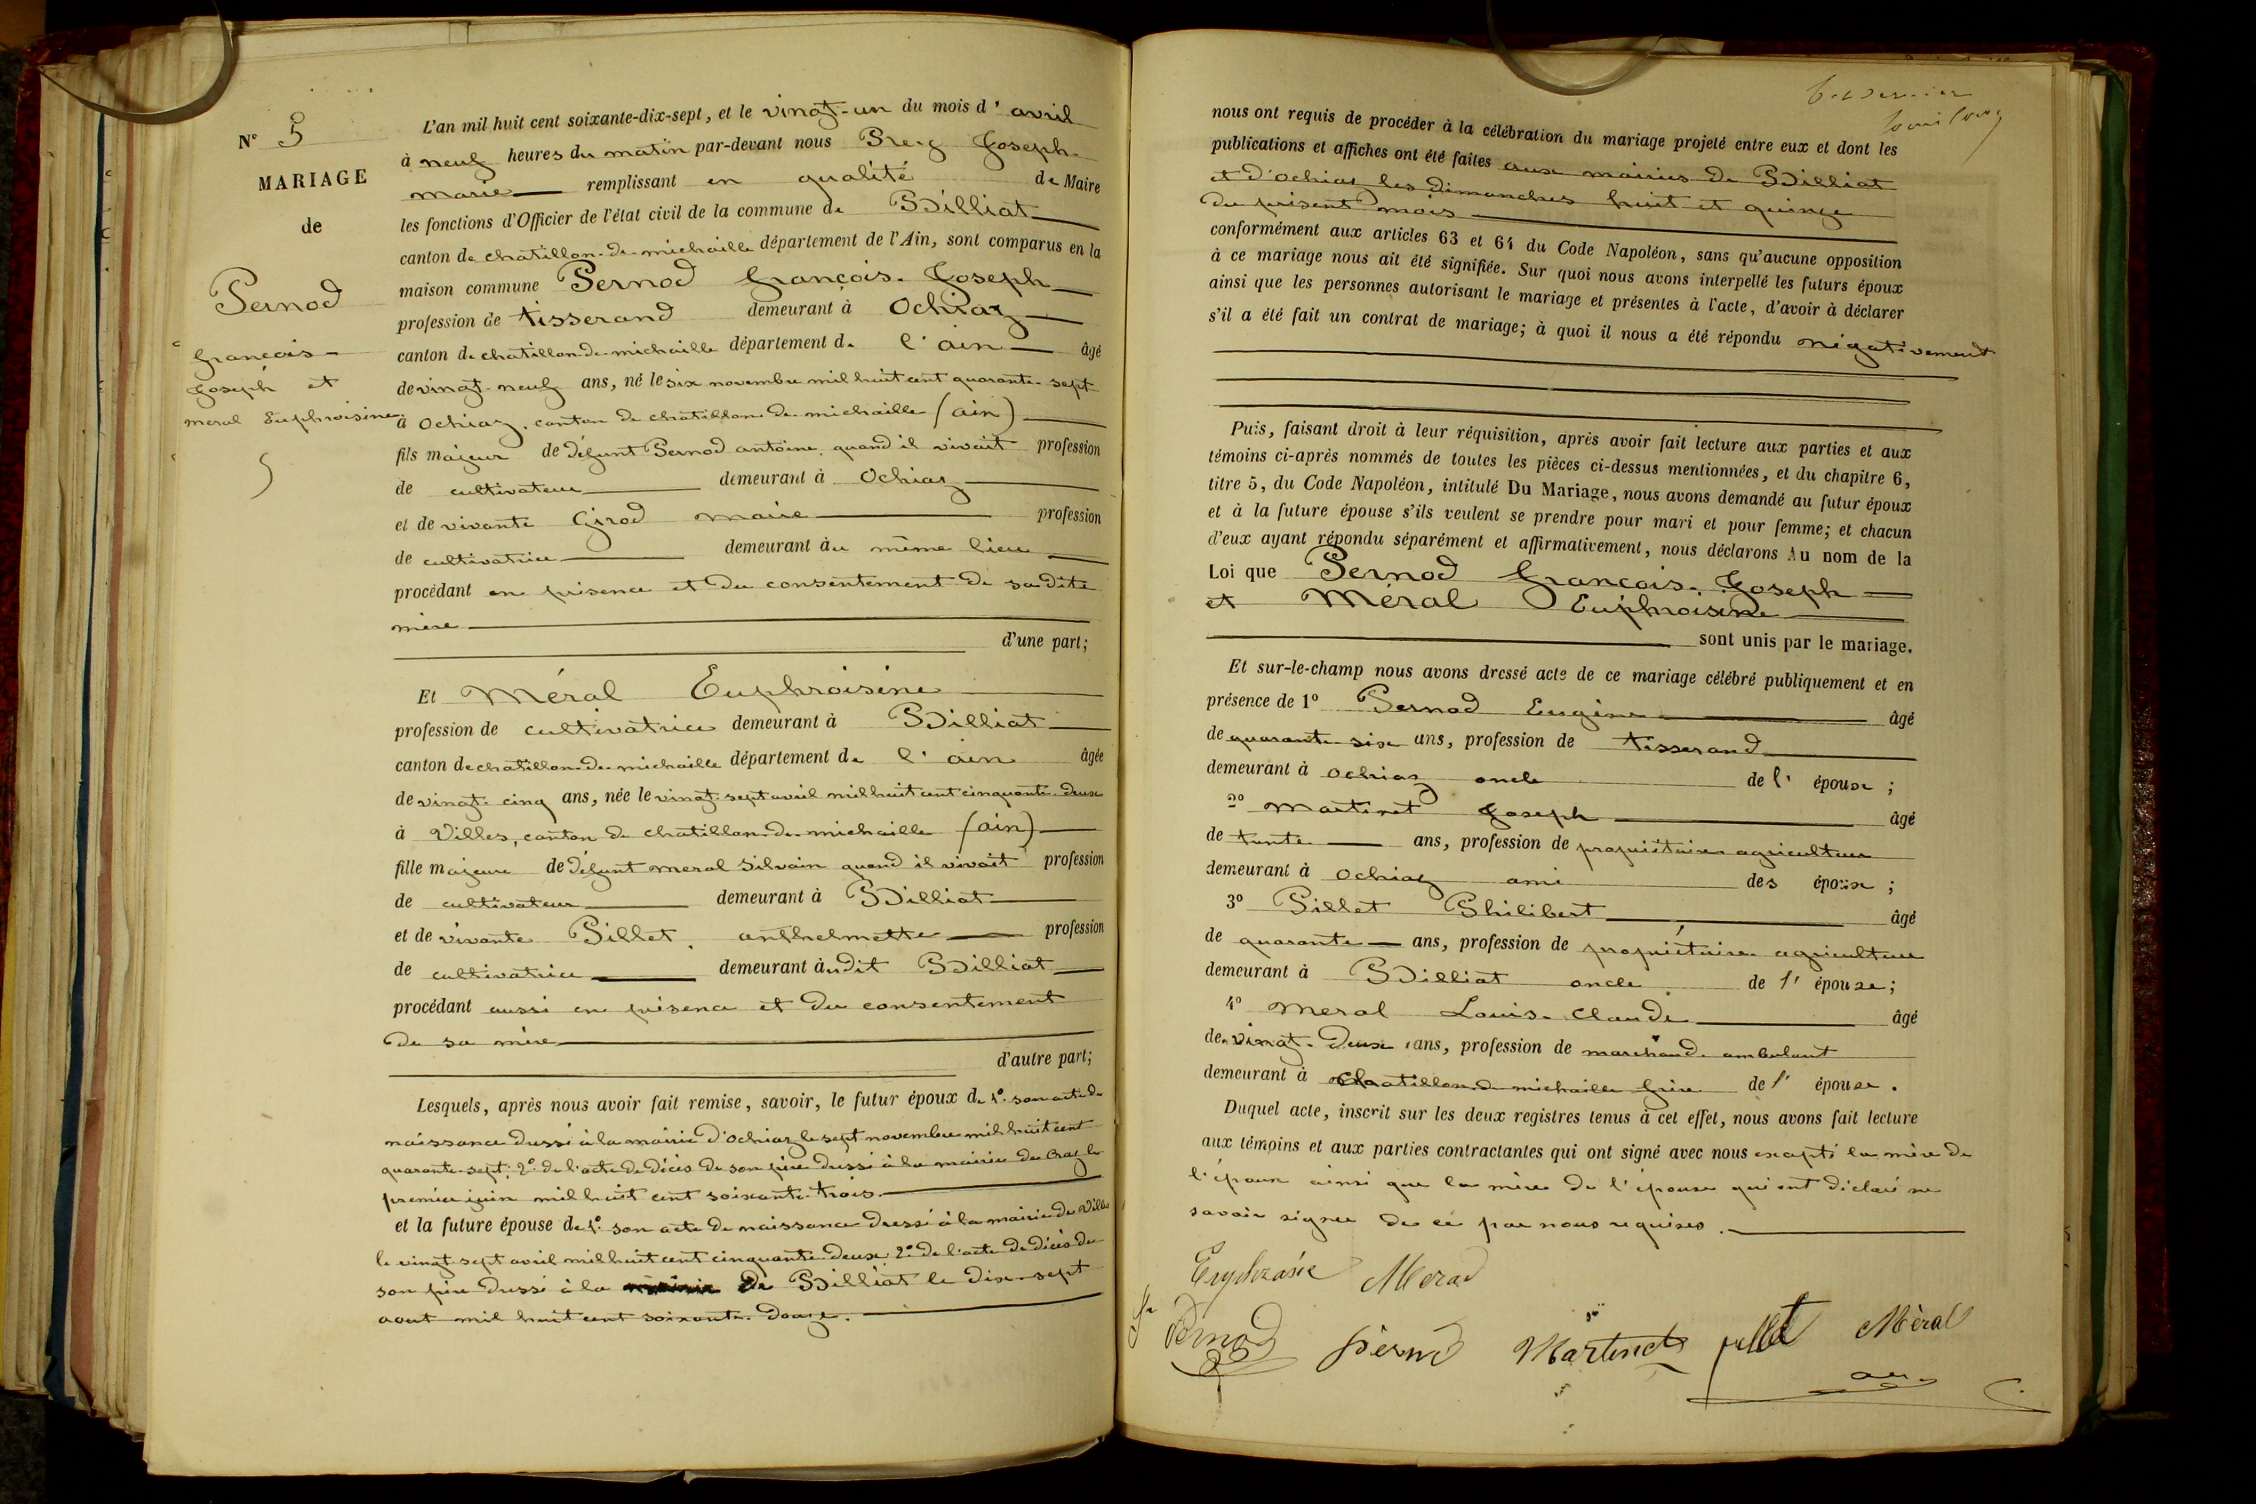 N° 5
MARIAGE
de
Pernod
françois-
Joseph et
meral Euphroisine
5
L'an mil huit cent soixante-dix-sept, et le vingt-un du mois d'avril
à neuf heures du matin par-devant nous Joseph-
marie remplissant en qualité de Maire
les fonctions d'Officier de l'état civil de la commune de Billiat
canton de chatillon-de-michaille département de l'Ain, sont comparus en la
maison commune Pernod françois-Joseph
profession de tisserand demeurant à Ochiaz
canton de chatillon-de-michaille département de l'ain âgé
de vingt-neuf ans, né le six novembre mil huit cent quarante-sept
à Ochiaz, canton de chatillon-de-michaille (ain)
fils majeur de défunt Pernod antoine, quand il vivait profession
de cultivateur demeurant à Ochiaz
et de vivante Girod marie profession
de cultivatrice demeurant au même lieu
procédant en présence et du consentement de sa dite
mère
d'une part;
Et Méral Euphroisine
profession de cultivatrice demeurant à Billiat
canton de chatillon-de-michaille département de l'ain âgée
de vingt-cinq ans, née le vingt-sept avril mil huit cent cinquante-deux
à Villes, canton de chatillon-de-michaille (ain)
fille majeure de défunt meral Silvain quand il vivait profession
de cultivateur demeurant à Billiat
et de vivante Pillet, anthelmette profession
de cultivatrice demeurant àudit Billiat
procédant aussi en présence et du consentement
de sa mère
d'autre part;
Lesquels, après nous avoir fait remise, savoir, le futur époux de 1° son acte de
naissance dressé à la mairie d'ochiaz le sept novembre mil huit cent
quarante-sept; 2° de l'acte de décès de son père dressé à la mairie de Craz le
premier juin mil huit cent soixante-trois.
et la future épouse de 1° son acte de naissance dressé à la mairie de Villes
le vingt-sept avril mil huit cent cinquante-deux; 2° de l'acte de décès de
son père dressé à la mairie de Billiat le dix-sept
aout mil huit cent soixante-douze.
nous ont requis de procéder à la célébration du mariage projeté entre eux et dont les
publications et affiches ont été faites aux mairies de Billiat
et d'ochiaz les dimanches huit et quinze
du présent mois
conformément aux articles 63 et 64 du Code Napoléon, sans qu'aucune opposition
à ce mariage nous ait été signifiée. Sur quoi nous avons interpellé les futurs époux
ainsi que les personnes autorisant le mariage et présentes à l'acte, d'avoir à déclarer
s'il a été fait un contrat de mariage; à quoi il nous a été répondu négativement
Puis, faisant droit à leur réquisition, après avoir fait lecture aux parties et aux
témoins ci-après nommés de toutes les pièces ci-dessus mentionnées, et du chapitre 6,
titre 5, du Code Napoléon, intitulé Du Mariage, nous avons demandé au futur époux
et à la future épouse s'ils veulent se prendre pour mari et pour femme; et chacun
d'eux ayant répondu séparément et affirmativement, nous déclarons Au nom de la
Loi que Pernod françois-Joseph
et Méral Euphroisine
sont unis par le mariage.
Et sur-le-champ nous avons dressé acte de ce mariage célébré publiquement et en
présence de 1° Pernod Eugène âgé
de quarante-six ans, profession de tisserand
demeurant à Ochiaz oncle de l'époux;
2° Martinet Joseph âgé
de trente ans, profession de propriétaire agriculteur
demeurant à Ochiaz ami des époux;
3° Pillet Philibert âgé
de quarante ans, profession de propriétaire agriculteur
demeurant à Billiat oncle de l'épouse;
4° Meral Louis-Claude âgé
de vingt-deux ans, profession de marchand ambulant
demeurant à Chatillon-de-michaille frère de l'épouse.
Duquel acte, inscrit sur les deux registres tenus à cet effet, nous avons fait lecture
aux témoins et aux parties contractantes qui ont signé avec nous excepté la mère de
l'époux ainsi que la mère de l'épouse qui ont déclaré ne
savoir signer de ce par nous requises.
Euphrasie Meral
Pernod Pernod Martinet pillet Mèral